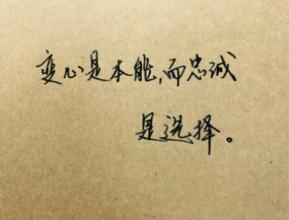 变心是本能，而忠诚
是选择。